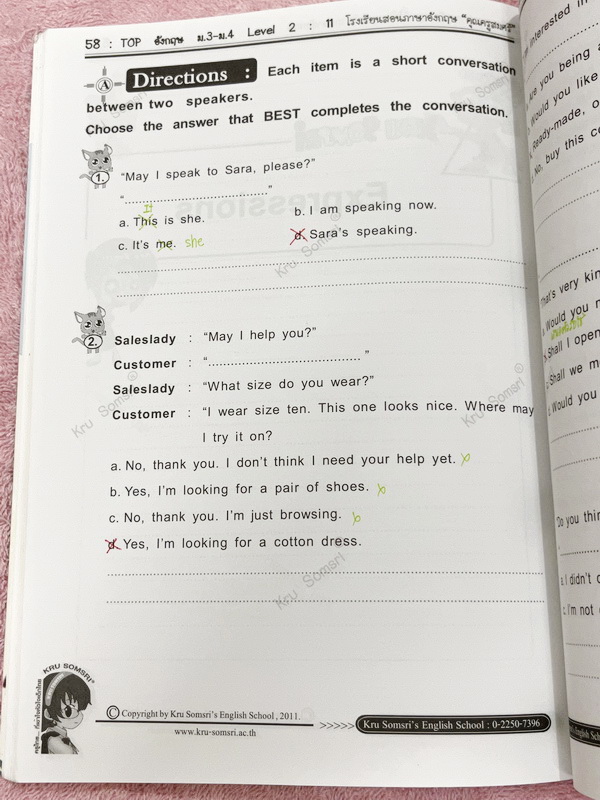 58 : TOP อังกฤษ ม.3-ม.4 Level 2 : 11 โรงเรียนสอนภาษาอังกฤษ "คุณครูสมศรี"
A Directions : Each item is a short conversation
between two speakers.
Choose the answer that BEST completes the conversation.
1. "May I speak to Sara, please?"
"......................................."
It
a. This is she. b. I am speaking now.
c. It's me. she d. Sara's speaking.
2. Saleslady : "May I help you?"
Customer : "....................................... "
Saleslady : "What size do you wear?"
Customer : "I wear size ten. This one looks nice. Where may
I try it on?
a. No, thank you. I don't think I need your help yet.
b. Yes, I'm looking for a pair of shoes.
c. No, thank you. I'm just browsing.
d. Yes, I'm looking for a cotton dress.
KRU SOMSRI
© Copyright by Kru Somsri's English School , 2011.
www.kru-somsri.ac.th
>>>>> Kru Somsri's English School : 0-2250-7396
Kru Somsri
Kru Somsri
Kru Somsri
Kru Somsri
Kru Somsri
interested in
Are you being a
Would you like
Ready-made, o
No, buy this co
That's very kin
Would you n
Shall I open
Shall we m
Would you
Do you thin
a. I didn't
c. I'm not